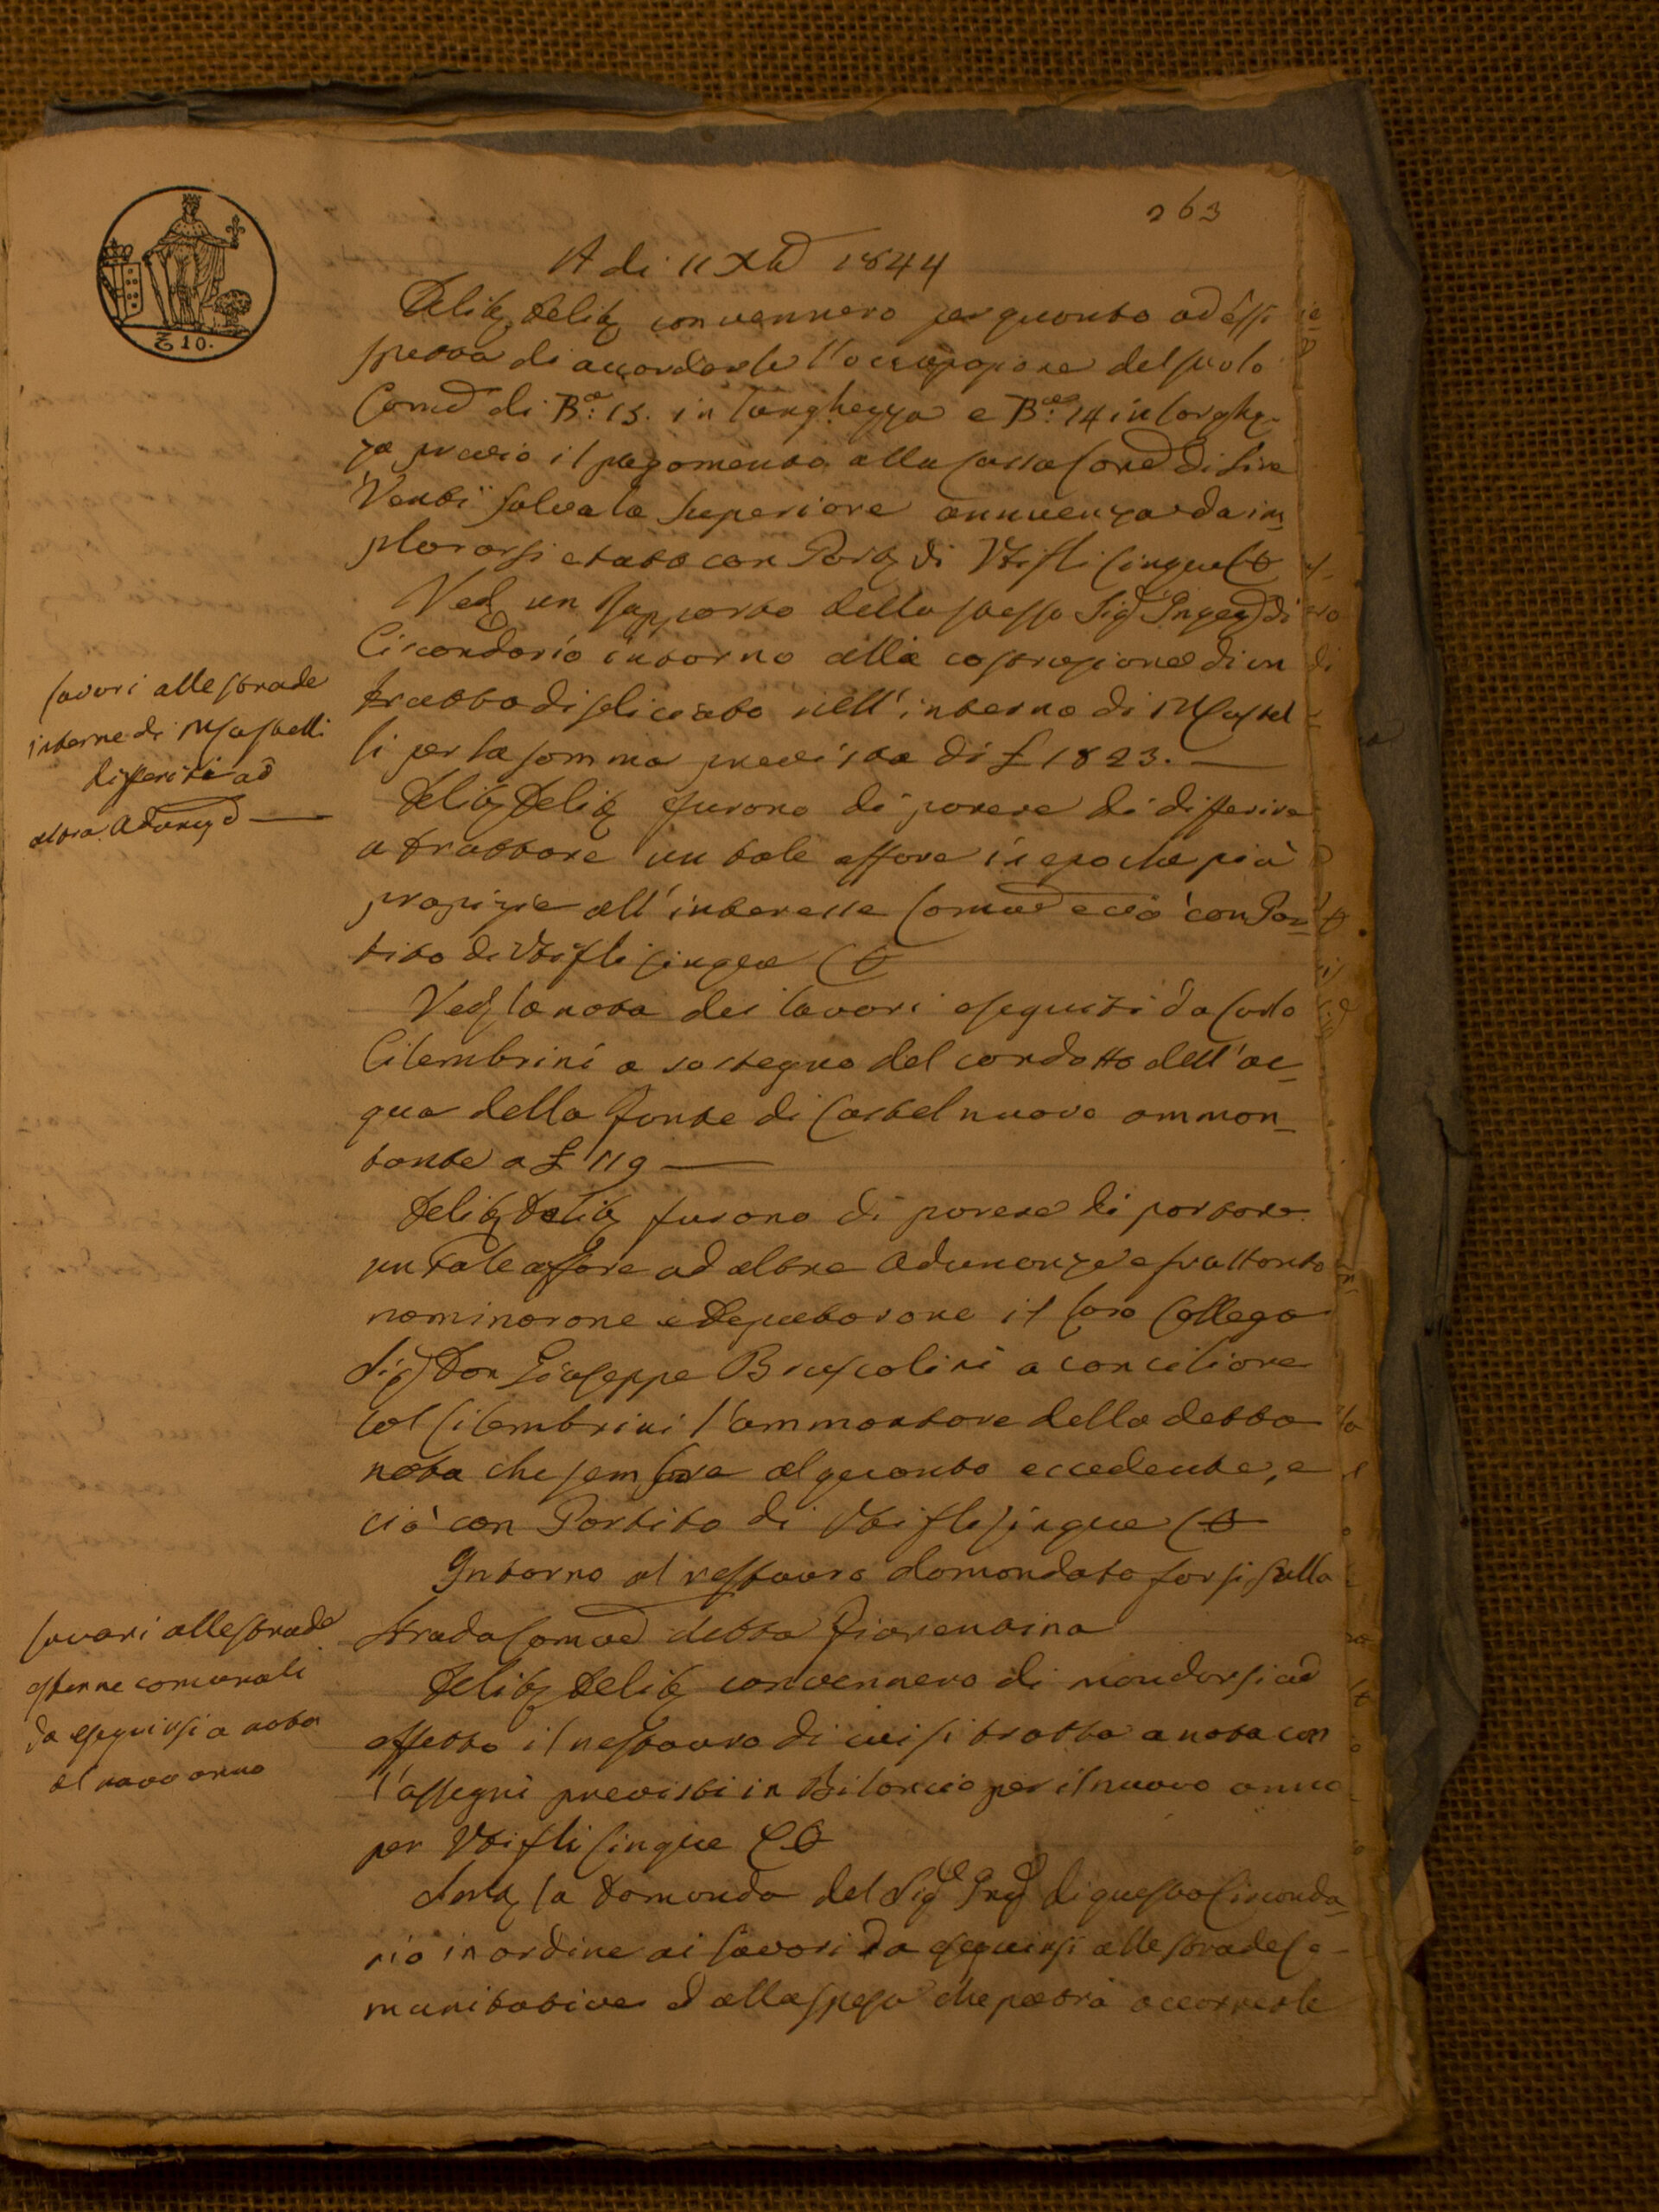 263
A di 11 Xbre 1844
Delib. Delib. convennero per quanto ad essi
spetta di accordarle l'occupazione del suolo
Comve di Ba: 15. in lunghezza e Bra: 14 in larghez-
za previo il pagamento alla Cassa Come di Lire
Venti salva la Superiore annuenza da im
plorarsi e tutto con Part. di Vti fli Cinque
Ved. un Rapporto dello stesso Sig. Ingeg. di
Circondario intorno alla costruzione di un
tratto di seliciato nell'interno di
li per la somma prevista di £ 1823.
Lavori alle strade
interne di
differiti ad
altra Adunza
Delib. Delib. furono di parere di differire
a trattare un tale affare in epoche più
propizie all'interesse Comve e ciò con Par
tito di Vti fli Cinque
Ved. la nota dei lavori eseguiti da
Cilembrini a sostegno del condotto dell'ac
qua della fonte di Castelnuovo ammon
tante a £ 119
Delib. Delib. furono di parere di portare
un tale affare ad altra Adunanza e frattanto
nominarono e deputarono il loro Collega
Sig. Don Giuseppe Bruscolini a conciliare
col Cilembrini l'ammontare della detta
nota che sembra alquanto eccedente, e
ciò con Partito di Vti fli Cinque
Intorno al restauro domandato farsi sulla
Strada Comve detta Fiorentina
Lavori alle strade
esterne comunali
da eseguirsi a nota
al nuovo anno
Delib. Delib. convennero di mandarsi ad
effetto il restauro di cui si tratta a nota con
l'assegni previsti in Bilancio per il nuovo anno
per Vti fli Cinque
la domanda del Sig. Ing. di questo Circonda
rio in ordine ai lavori da eseguirsi alle strade Co-
munitative ed alla spesa che potrà occorrerle
£ 10.